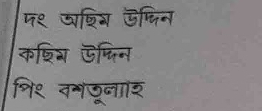 দং অছিম উদ্দিন
কছিম উদ্দিন
পিং বশতুল্যাহ